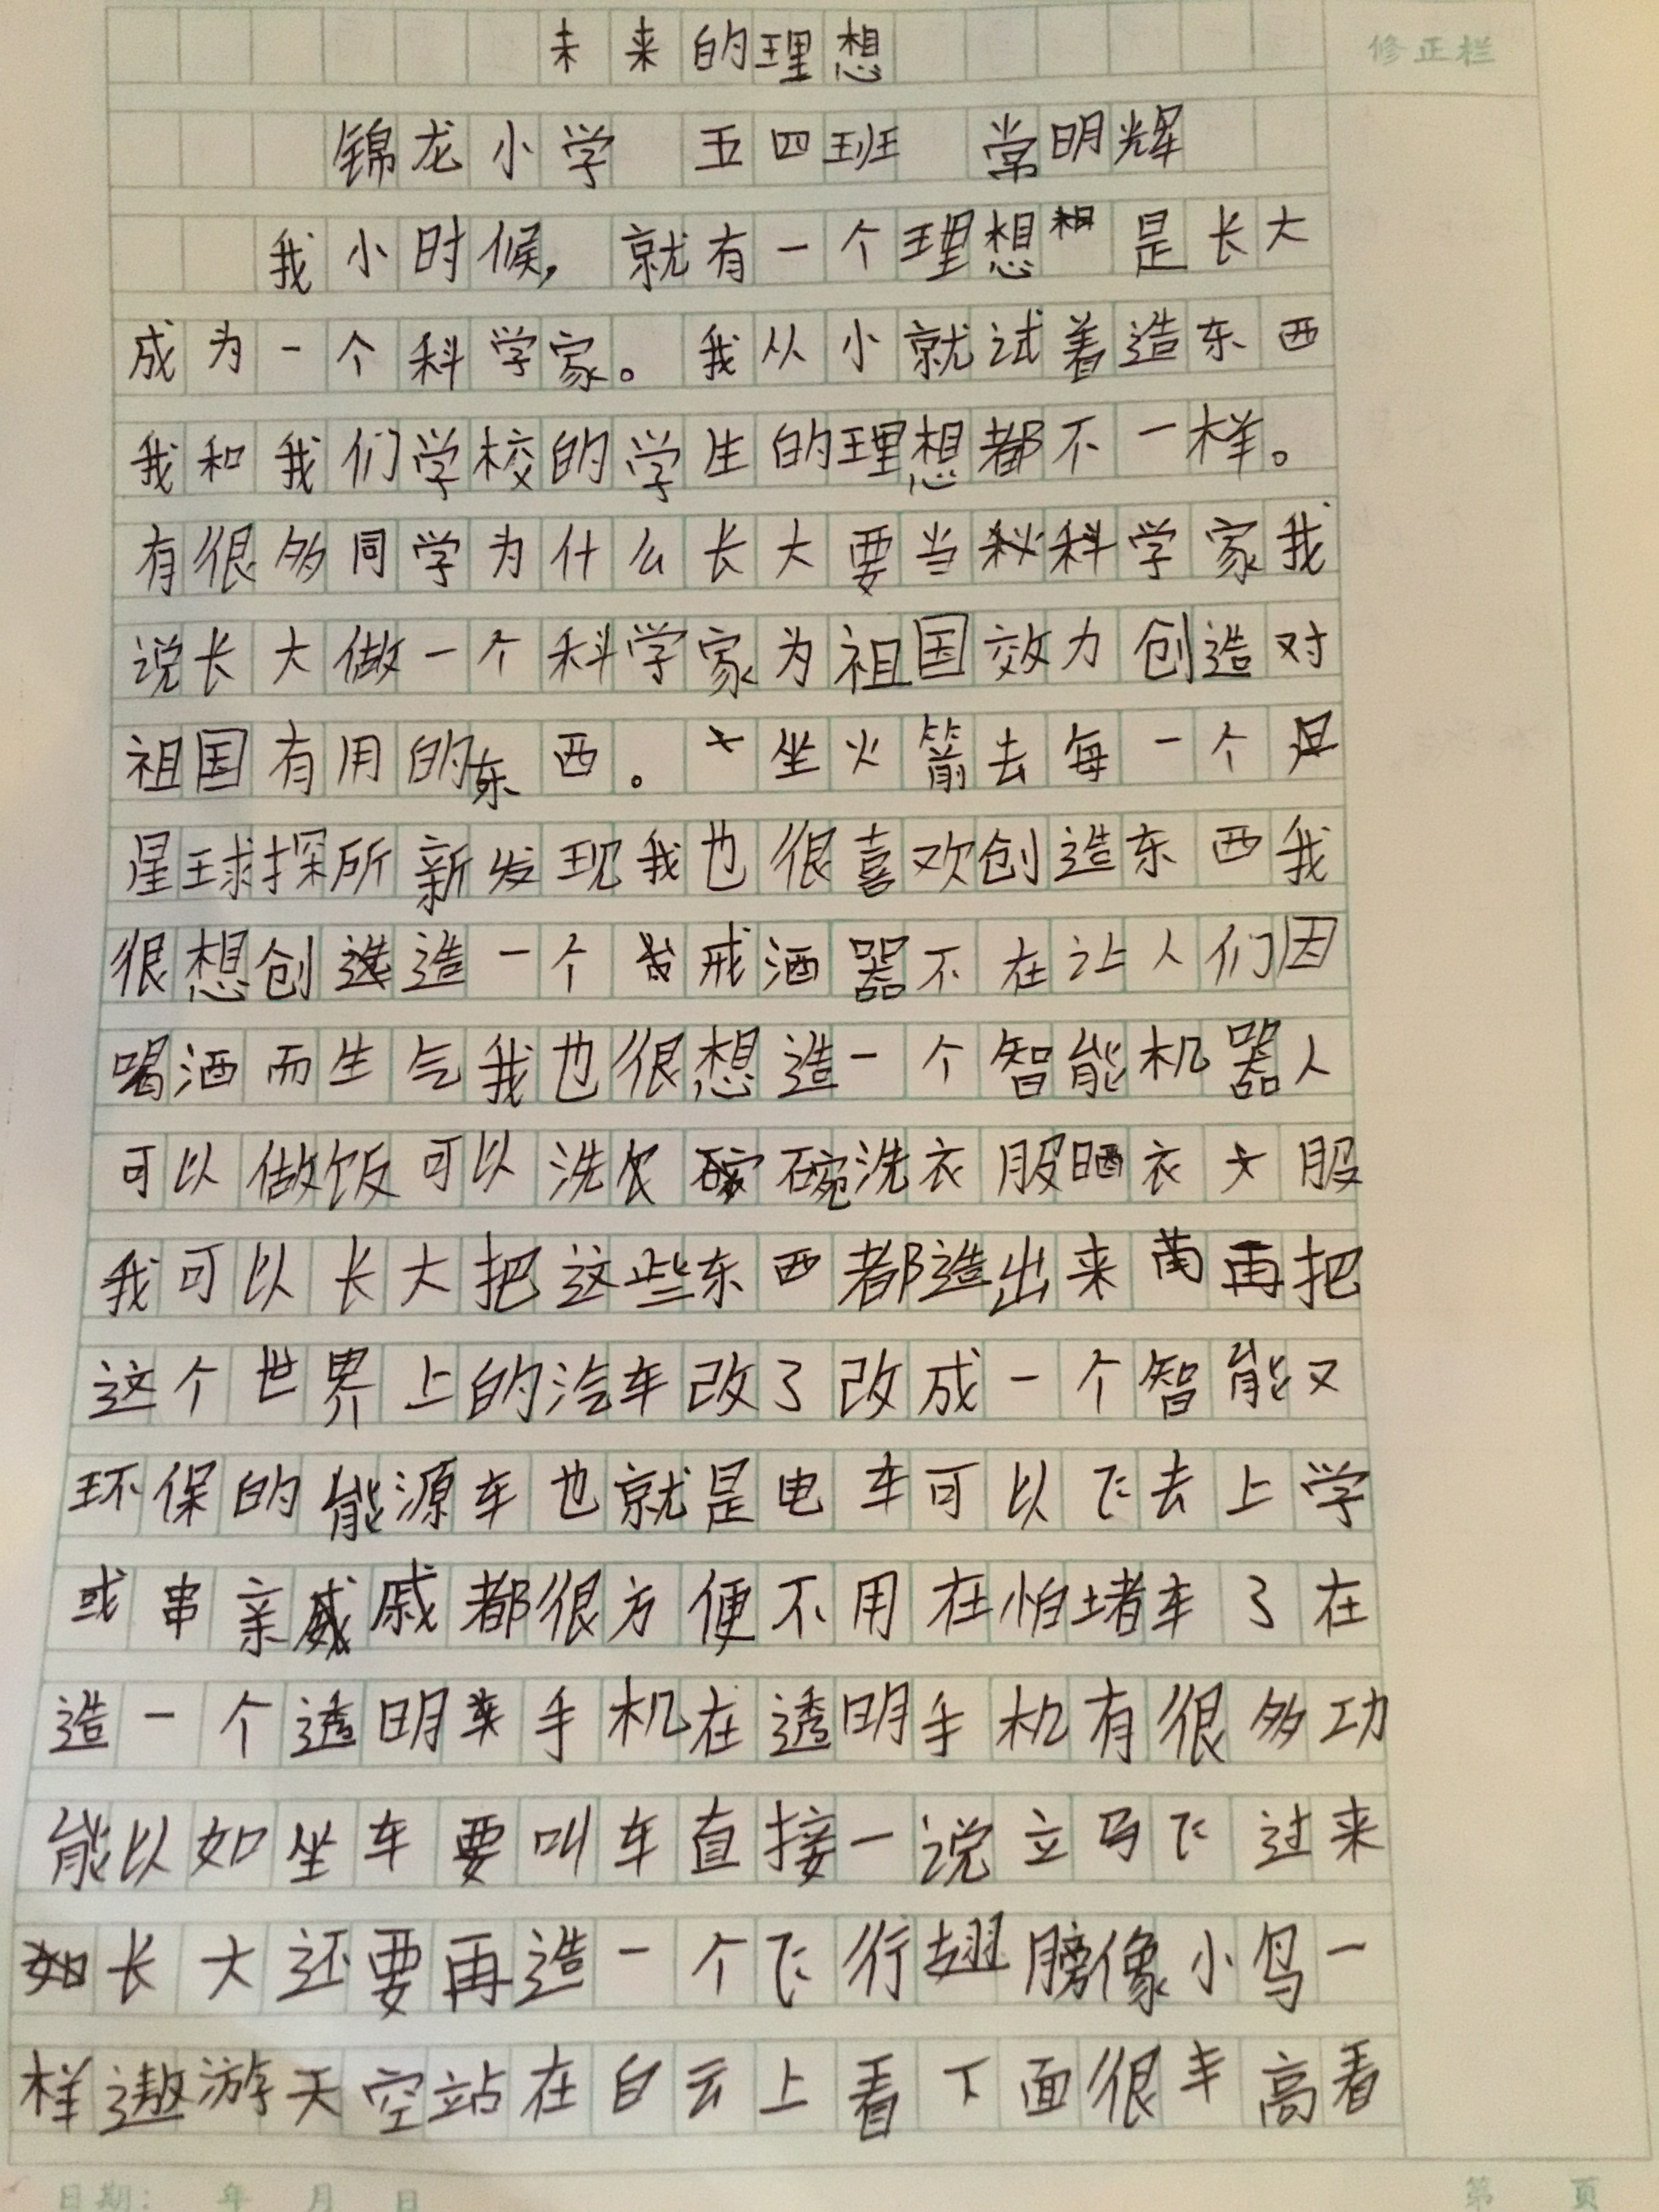 未来的理想
修正栏
锦龙小学 五四班 常明辉
我小时候，就有一个理想是长大
成为一个科学家。我从小就试着造东西
我和我们学校的学生的理想都不一样。
有很多同学为什么长大要当科学家我
说长大做一个科学家为祖国效力创造对
祖国有用的东西。坐火箭去每一个
星球探所新发现我也很喜欢创造东西我
很想创造一个戒酒器不在让人们因
喝酒而生气我也很想造一个智能机器人
可以做饭可以洗碗洗衣服晒衣服
我可以长大把这些东西都造出来再把
这个世界上的汽车改了改成一个智能又
环保的能源车也就是电车可以飞去上学
或串亲戚都很方便不用在怕堵车了在
造一个透明手机在透明手机有很多功
能以如坐车要叫车直接一说立马飞过来
长大还要再造一个飞行翅膀像小鸟一
样遨游天空站在白云上看下面很高看
日期： 年 月 日
第 页